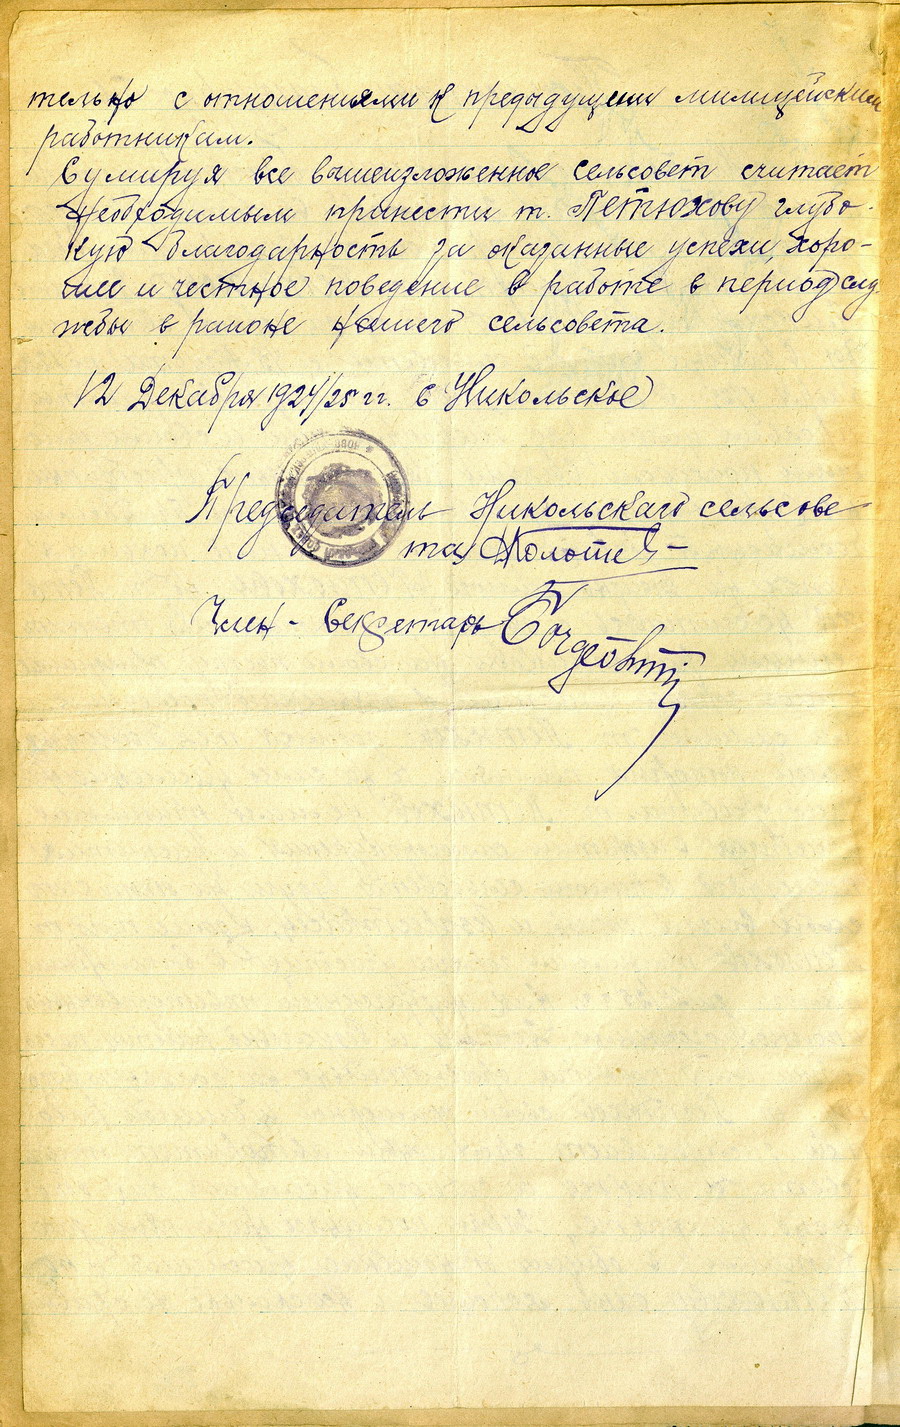 тельно с отношениями к предыдущим милицейским
работникам.
Сумируя все вышеизложенное сельсовет считает
необходимым принести т. Петюхову глубо-
кую благодарность за оказанные успехи, хоро-
шее и честное поведение в работе в период слу
жбы в районе нашего сельсовета.
12 Декабря 1924/25 гг. с Никольское
Председатель Никольскаго сельсове
та
Член - Секретарь